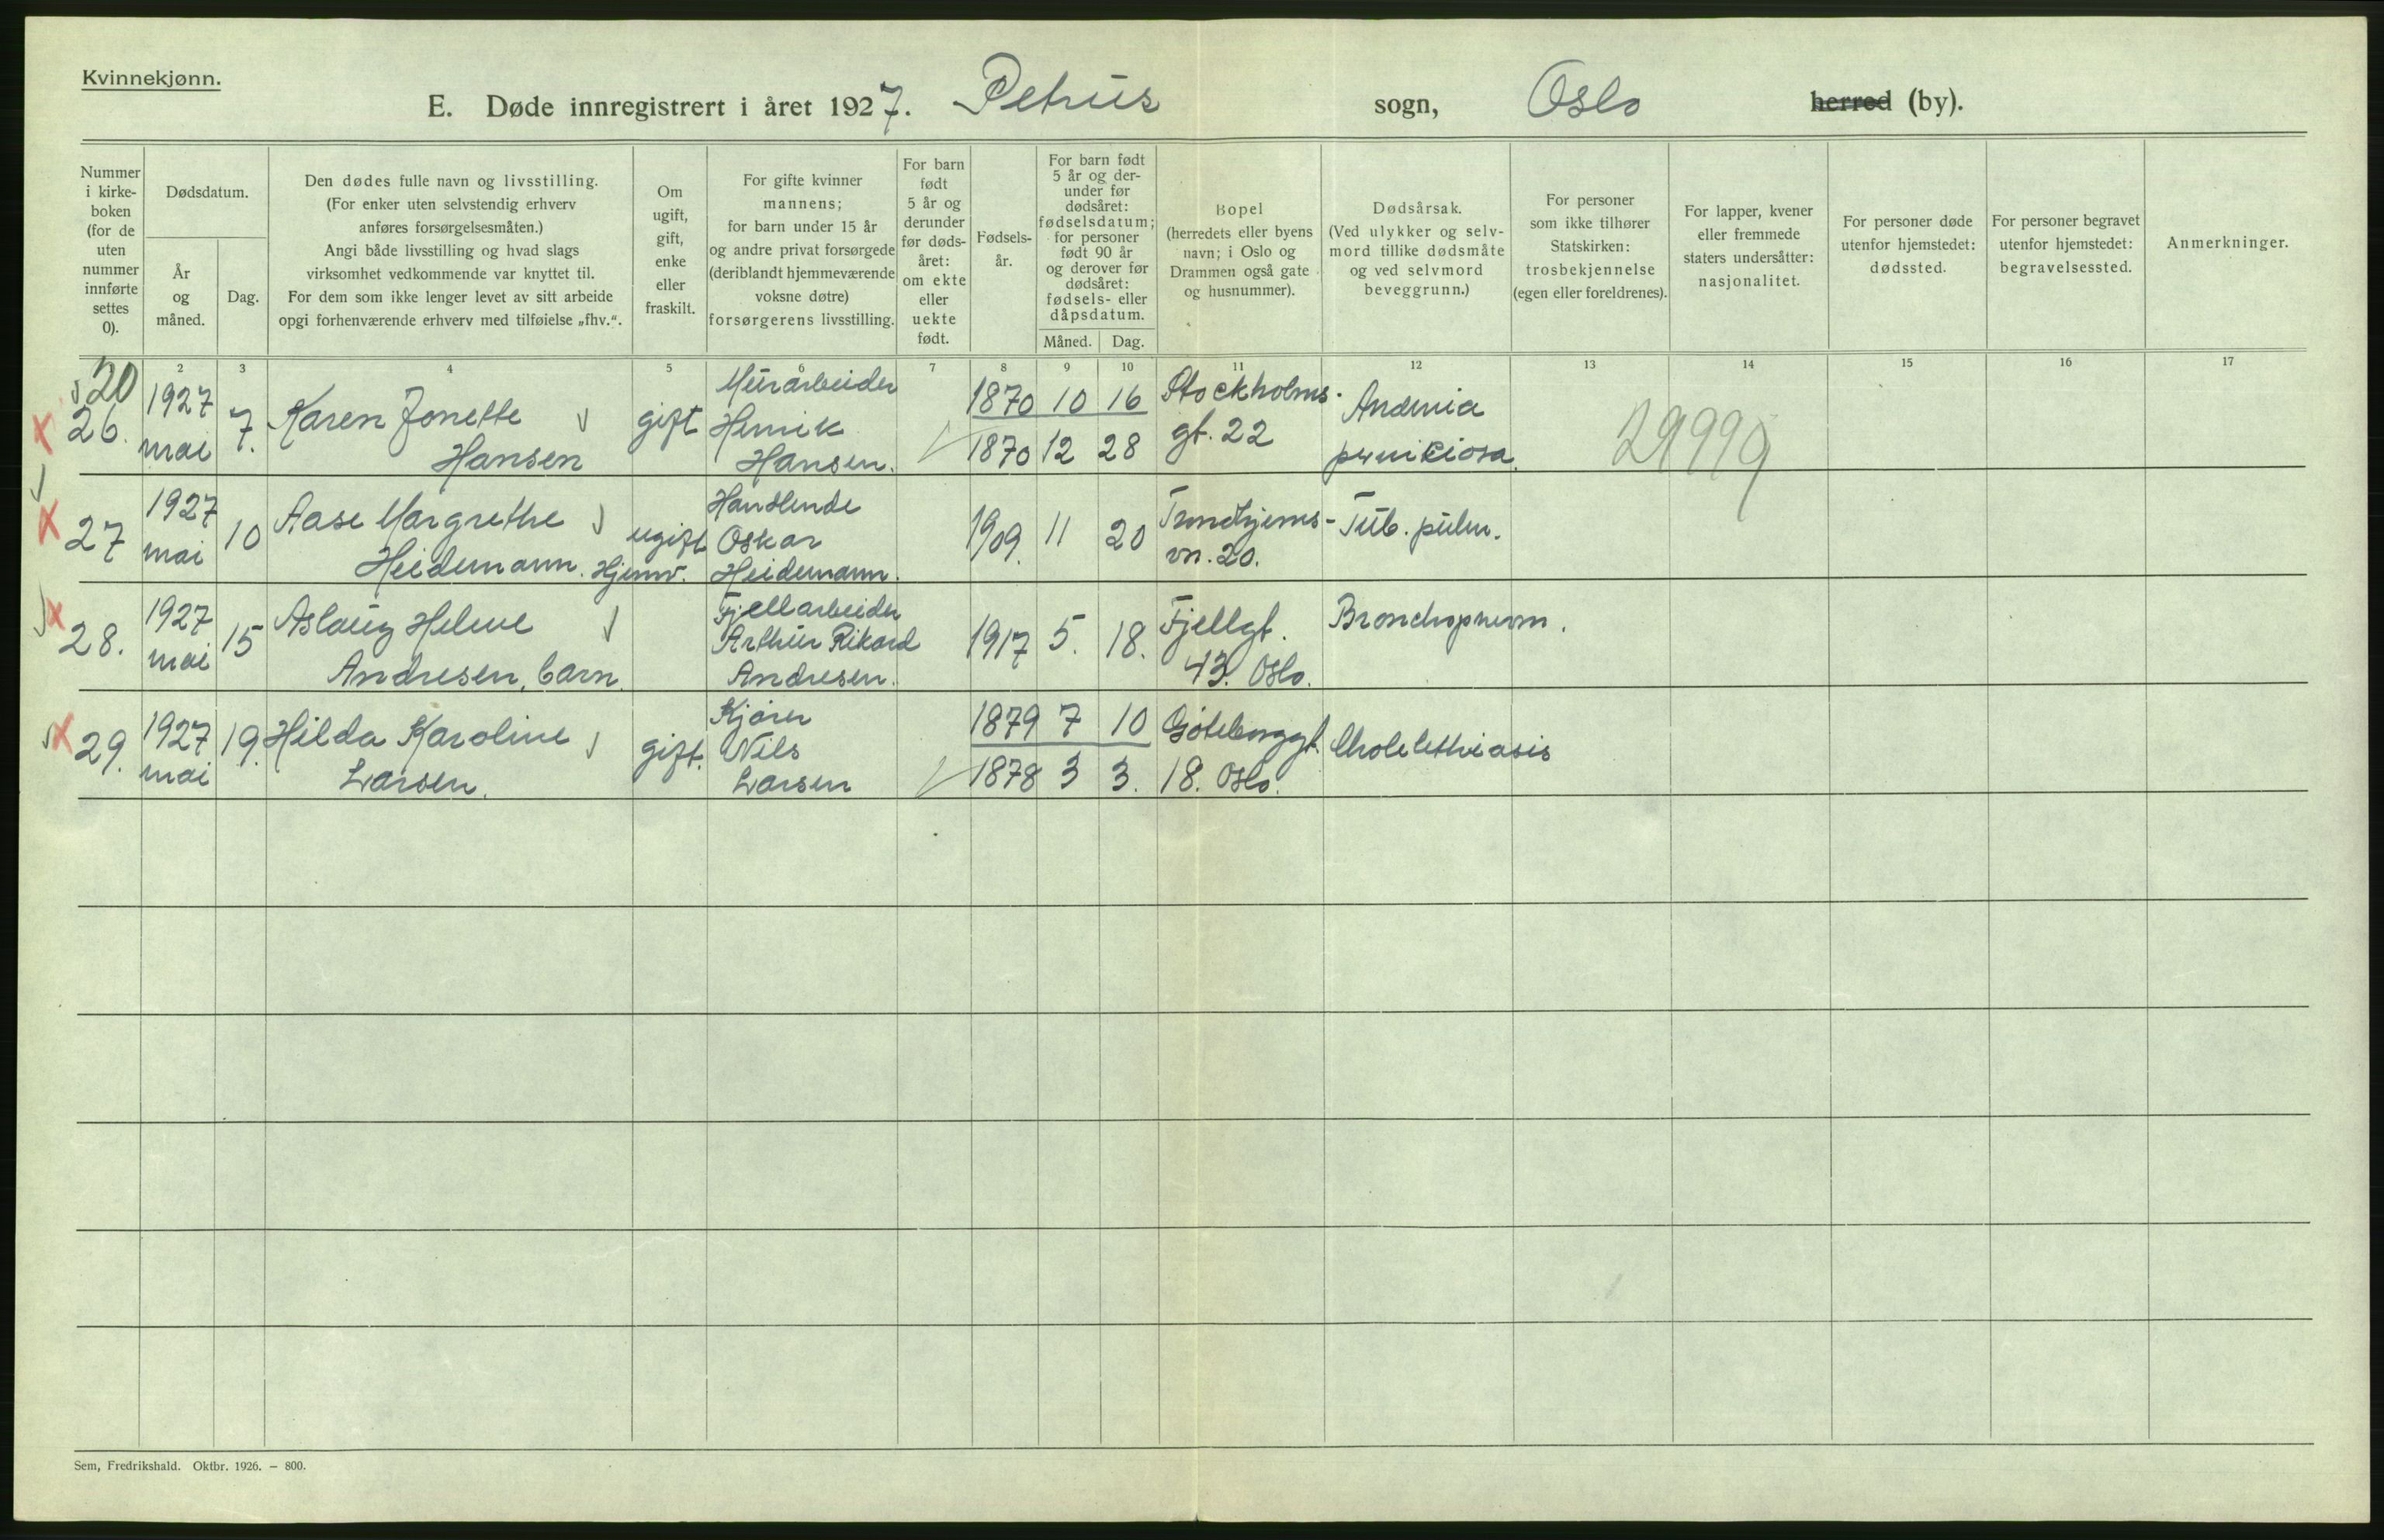 Kvinnekjønn.
E. Døde innregistrert i året 1927. Petrus sogn, Oslo herred (by).
Nummer
i kirke-
boken
(for de
uten
nummer
innførte
settes
0).
Dødsdatum.
År
og
måned.
Dag.
Den dødes fulle navn og livsstilling.
(For enker uten selvstendig erhverv
anføres forsørgelsesmåten.)
Angi både livsstilling og hvad slags
virksomhet vedkommende var knyttet til.
For dem som ikke lenger levet av sitt arbeide
opgi forhenværende erhverv med tilføielse „fhv.“.
Om
ugift,
gift,
enke
eller
fraskilt.
For gifte kvinner
mannens;
for barn under 15 år
og andre privat forsørgede
(deriblandt hjemmeværende
voksne døtre)
forsørgerens livsstilling.
For barn
født
5 år og
derunder
før døds-
året:
om ekte
eller
uekte
født.
Fødsels-
år.
For barn født
5 år og der-
under før
dødsåret:
fødselsdatum;
for personer
født 90 år
og derover før
dødsåret:
fødsels- eller
dåpsdatum.
Måned. Dag.
Bopel
(herredets eller byens
navn; i Oslo og
Drammen også gate
og husnummer).
Dødsårsak.
(Ved ulykker og selv-
mord tillike dødsmåte
og ved selvmord
beveggrunn.)
For personer
som ikke tilhører
Statskirken:
trosbekjennelse
(egen eller foreldrenes).
For lapper, kvener
eller fremmede
staters undersåtter:
nasjonalitet.
For personer døde
utenfor hjemstedet:
dødssted.
For personer begravet
utenfor hjemstedet:
begravelsessted.
Anmerkninger.
2 3 4 5 6 7 8 9 10 11 12 13 14 15 16 17
20
26.
1927
mai
7.
Karen Jonette
Hansen
gift
Murarbeider
Henrik
Hansen.
1870 10 16
1870 12 28
Stockholms-
gt. 22
Anæmia
perniciosa.
29999
27
1927
mai
10
Aase Margrethe
Heidemann. Hjemv.
ugift
Handlende
Oskar
Heidemann.
1909. 11 20
Trondhjems-
vn. 20.
Tub. pulm.
28.
1927
mai
15
Aslaug Helene
Andresen, barn.
Fjellarbeider
Arthur Rikard
Andresen.
1917 5. 18.
Fjellgt.
43. Oslo.
Bronchopneum.
29.
1927
mai
19.
Hilda Karoline
Larsen.
gift.
Kjører
Nils
Larsen
1879 7 10
1878 3 3.
Gøteborggt.
18. Oslo.
Cholelithiasis
Sem, Fredrikshald. Oktbr. 1926. — 800.